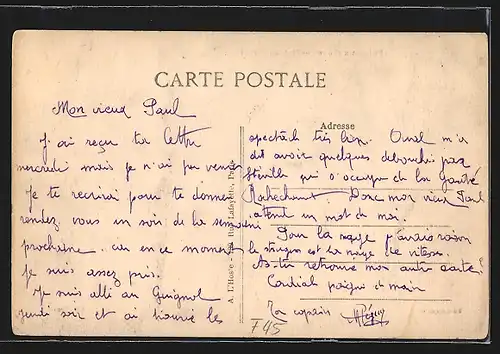 CARTE POSTALE
Adresse
Mon vieux Paul
J'ai reçu ta lettre
mercredi mais je n'ai pu venir
Je te recrirai pour te donner
rendez vous un soir de la semaine
prochaine. car en ce moment
Je suis assez pris.
Je suis allé au Guignol
jeudi soir et ai trouvé le
spectacle très bien. Duval m'a
dit avoir quelques débouchés par
qui s'occupe de la Gaîté
Rochechouart. Donc mon vieux Paul
attend un mot de moi.
Pour la nage j'avais raison
le trudgeon est la nage de vitesse.
As-tu retrouvé mon autre carte?
Cordial poignée de main
Ton copain
A. L'Hoste - Rue Lafayette, Paris
F45